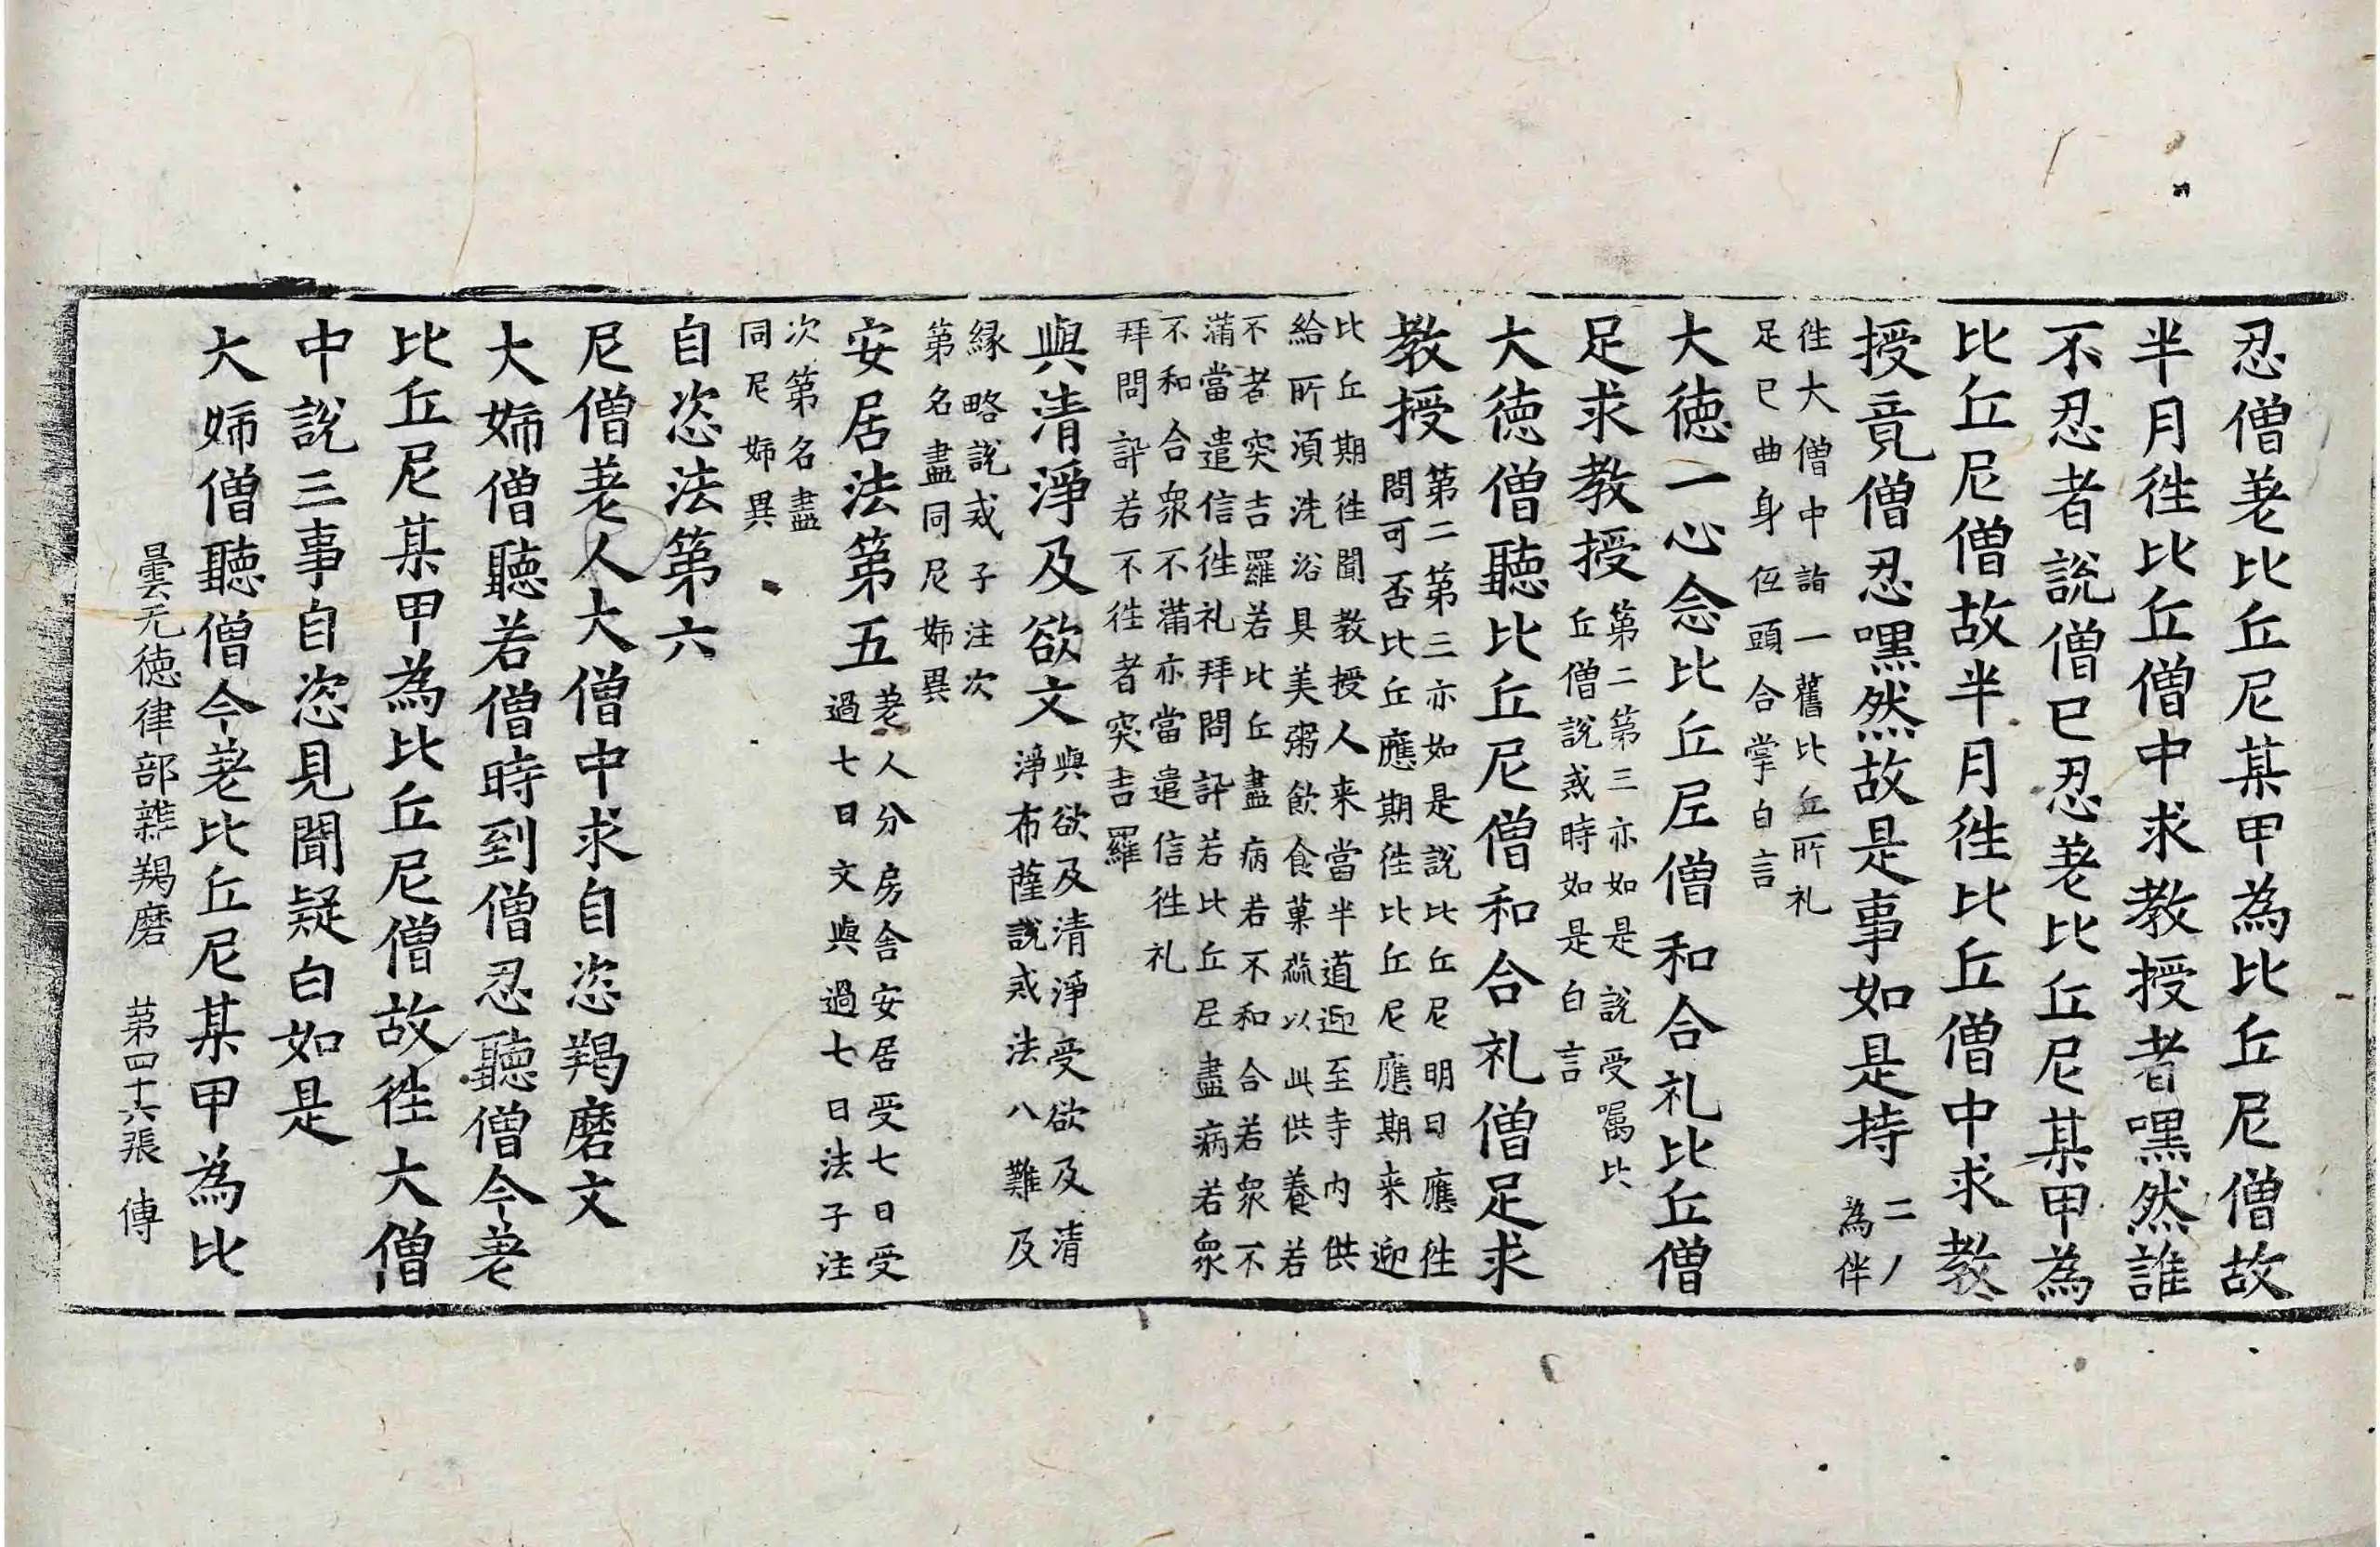 忍僧差比丘尼某甲為比丘尼僧故
半月徃比丘僧中求教授者嘿然誰
不忍者說僧已忍差比丘尼某甲為
比丘尼僧故半月徃比丘僧中求教
授竟僧忍嘿然故是事如是持二人
為伴
徃大僧中詣一舊比丘所礼
足已曲身伍頭合掌白言
大徳一心念比丘尼僧和合礼比丘僧
足求教授第二第三亦如是說受囑比
丘僧說戒時如是白言
大徳僧聽比丘尼僧和合礼僧足求
教授第二第三亦如是說比丘尼明日應徃
問可否比丘應期徃比丘尼應期来迎
比丘期徃聞教授人来當半道迎至寺内供
給所湏洗浴具美粥飲食菓蔬以此供養若
不者突吉羅若比丘盡病若不和合若衆不
滿當遣信徃礼拜問訊若比丘尼盡病若衆
不和合衆不滿亦當遣信徃礼
拜問訊若不徃者突吉羅
與清淨及欲文與欲及清淨受欲及清
淨布薩說戒法八難及
縁略說戒子注次
第名盡同尼姉異
安居法第五差人分房舎安居受七日受
過七日文與過七日法子注
次第名盡
同尼姉異
自恣法第六
尼僧差人大僧中求自恣羯磨文
大姉僧聽若僧時到僧忍聽僧今差
比丘尼某甲為比丘尼僧故徃大僧
中說三事自恣見聞疑白如是
大姉僧聽僧今差比丘尼某甲為比
曇无徳律部雜羯磨 苐四十六張 傳